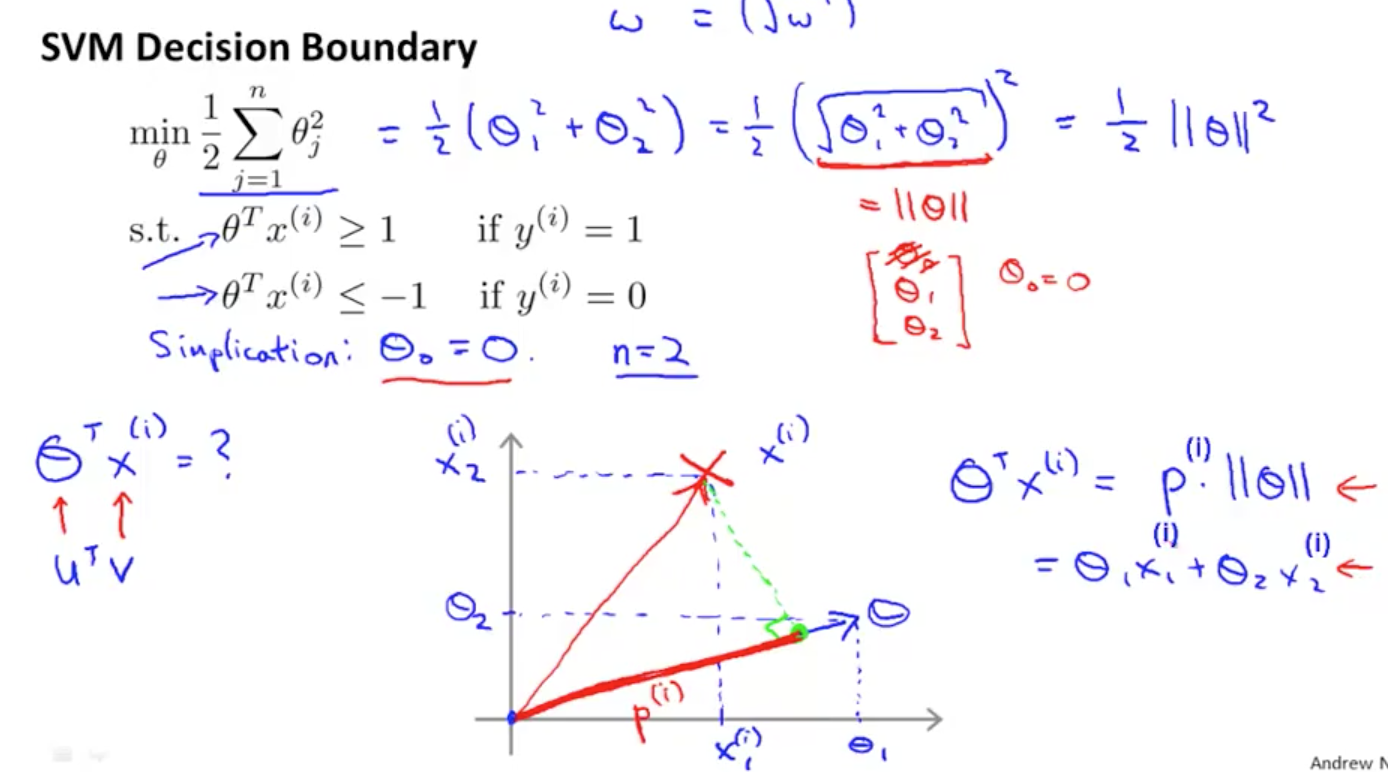 ω = (√ω )
SVM Decision Boundary
min_θ 1/2 ∑_{j=1}^{n} θ_j^2 = 1/2 (θ_1^2 + θ_2^2) = 1/2 (√(θ_1^2 + θ_2^2))^2 = 1/2 ||θ||^2
= ||θ||
s.t. θ^T x^(i) ≥ 1 if y^(i) = 1
[θ_0 θ_1 θ_2] θ_0 = 0
θ^T x^(i) ≤ −1 if y^(i) = 0
Simplication: θ_0 = 0. n=2
θ^T x^(i) = ?
u^T v
x_2^(i)
x^(i)
θ_2
θ
p^(i)
x_1^(i)
θ_1
θ^T x^(i) = p^(i) · ||θ|| ←
= θ_1 x_1^(i) + θ_2 x_2^(i) ←
Andrew N